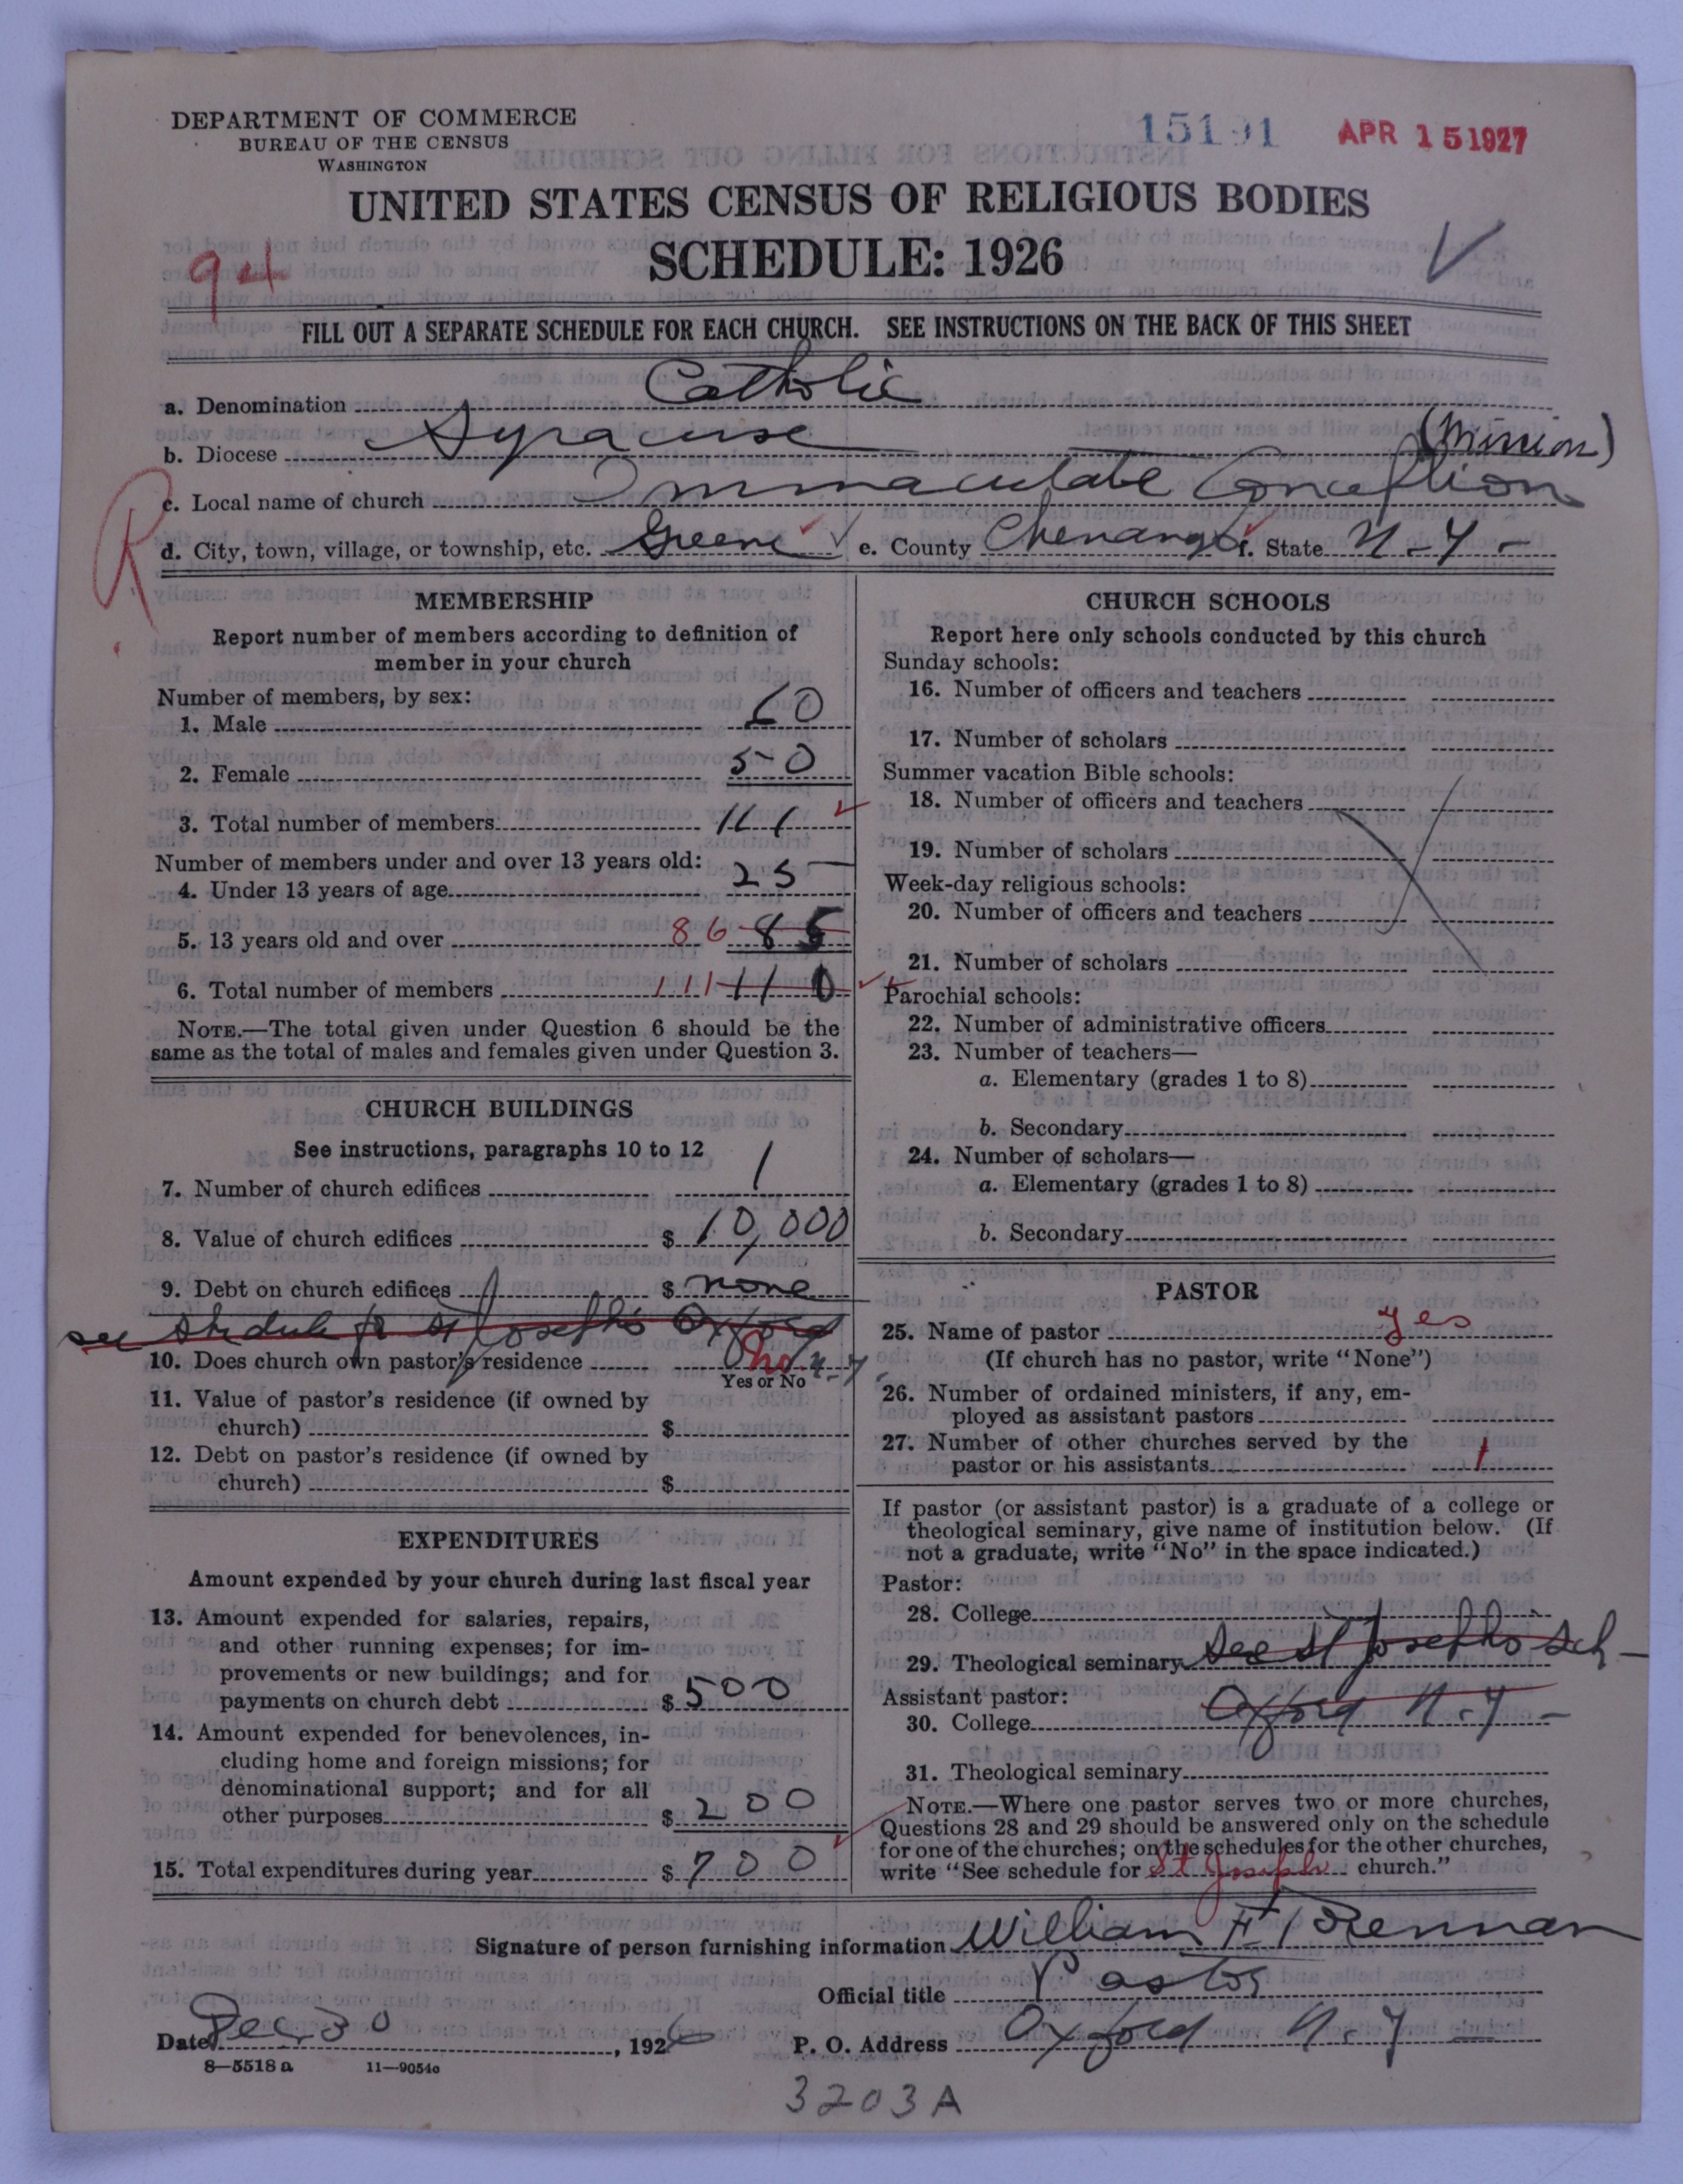 DEPARTMENT OF COMMERCE
BUREAU OF THE CENSUS
WASHINGTON
15191
APR 15 1927
UNITED STATES CENSUS OF RELIGIOUS BODIES
SCHEDULE: 1926
94
FILL OUT A SEPARATE SCHEDULE FOR EACH CHURCH. SEE INSTRUCTIONS ON THE BACK OF THIS SHEET
a. Denomination Catholic
b. Diocese Syracuse (Mission)
R
c. Local name of church Immaculate Conception
d. City, town, village, or township, etc. Greene e. County Chenango f. State N.Y.
MEMBERSHIP
Report number of members according to definition of
member in your church
Number of members, by sex:
1. Male 60
2. Female 50
3. Total number of members
Number of members under and over 13 years old:
4. Under 13 years of age 25
5. 13 years old and over 86 85
6. Total number of members 111 110
NOTE.—The total given under Question 6 should be the
same as the total of males and females given under Question 3.
CHURCH BUILDINGS
See instructions, paragraphs 10 to 12
7. Number of church edifices 1
8. Value of church edifices $ 10,000
9. Debt on church edifices $ none
see schedule for St Joseph's Oxford
N-Y
10. Does church own pastor's residence No
Yes or No
11. Value of pastor's residence (if owned by
church) $
12. Debt on pastor's residence (if owned by
church) $
EXPENDITURES
Amount expended by your church during last fiscal year
13. Amount expended for salaries, repairs,
and other running expenses; for im-
provements or new buildings; and for
payments on church debt $ 500
14. Amount expended for benevolences, in-
cluding home and foreign missions; for
denominational support; and for all
other purposes $ 200
15. Total expenditures during year $ 700
CHURCH SCHOOLS
Report here only schools conducted by this church
Sunday schools:
16. Number of officers and teachers
17. Number of scholars
Summer vacation Bible schools:
18. Number of officers and teachers
19. Number of scholars
Week-day religious schools:
20. Number of officers and teachers
21. Number of scholars
Parochial schools:
22. Number of administrative officers
23. Number of teachers—
a. Elementary (grades 1 to 8)
b. Secondary
24. Number of scholars—
a. Elementary (grades 1 to 8)
b. Secondary
PASTOR
25. Name of pastor yes
(If church has no pastor, write "None")
26. Number of ordained ministers, if any, em-
ployed as assistant pastors
27. Number of other churches served by the
pastor or his assistants 1
If pastor (or assistant pastor) is a graduate of a college or
theological seminary, give name of institution below. (If
not a graduate, write "No" in the space indicated.)
Pastor:
28. College
29. Theological seminary See St Joseph's Sch-
Assistant pastor:
30. College Oxford N-Y-
31. Theological seminary
NOTE.—Where one pastor serves two or more churches,
Questions 28 and 29 should be answered only on the schedule
for one of the churches; on the schedules for the other churches,
write "See schedule for St Joseph church."
Signature of person furnishing information William F Brennan
Official title Pastor
Date Dec. 30, 1926 P. O. Address Oxford N.Y.
8—5518 a 11—9054a
3203A